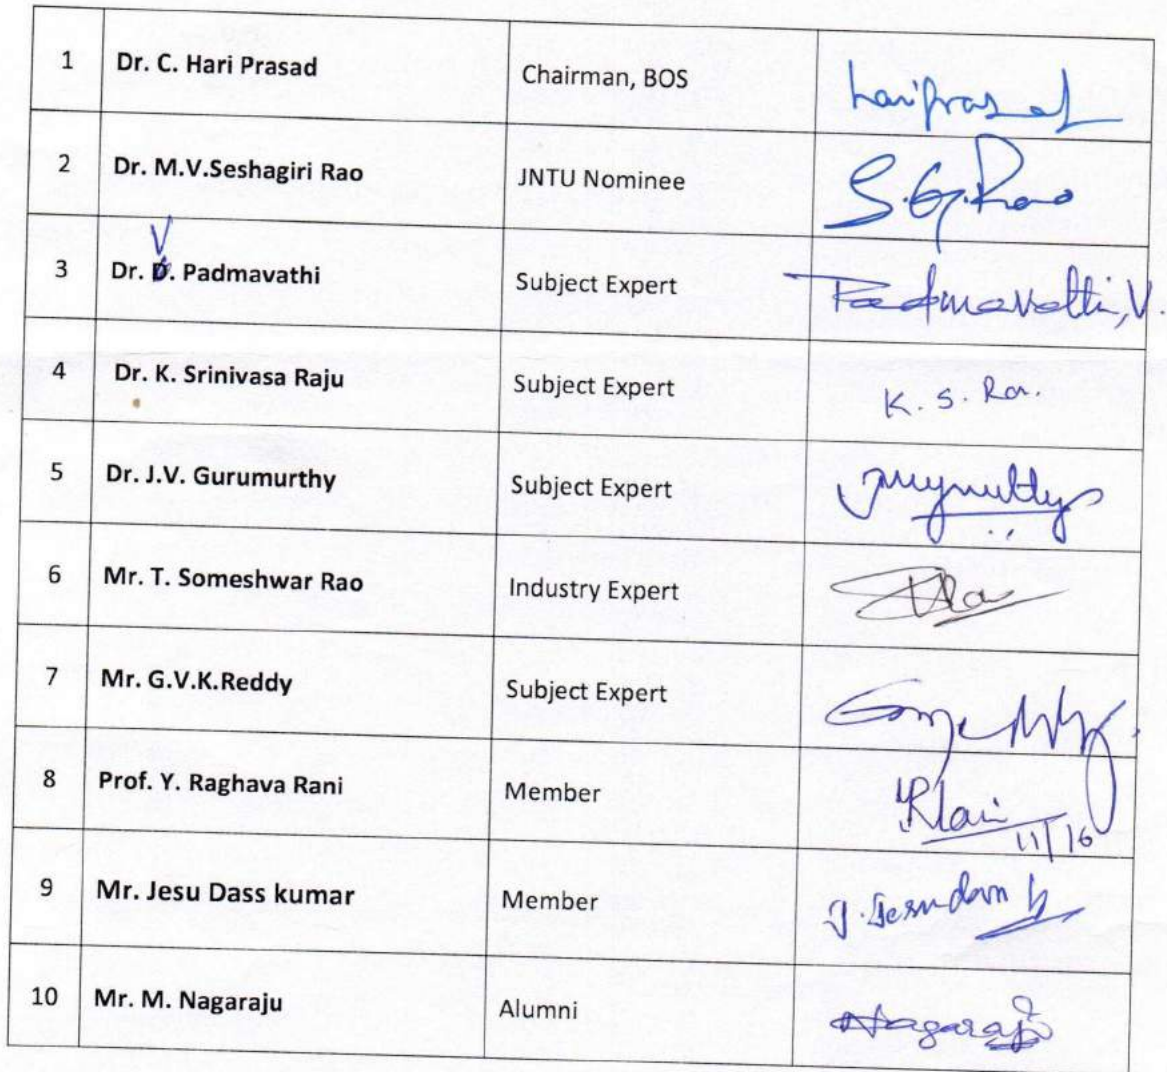 1 Dr. C. Hari Prasad Chairman, BOS hariprasad
2 Dr. M.V.Seshagiri Rao JNTU Nominee S.G.Rao
V
3 Dr. D. Padmavathi Subject Expert Padmavathi,V.
4 Dr. K. Srinivasa Raju Subject Expert K. S. Ra
5 Dr. J.V. Gurumurthy Subject Expert
6 Mr. T. Someshwar Rao Industry Expert
7 Mr. G.V.K.Reddy Subject Expert
8 Prof. Y. Raghava Rani Member
11/16
9 Mr. Jesu Dass kumar Member
10 Mr. M. Nagaraju Alumni Nagaraju